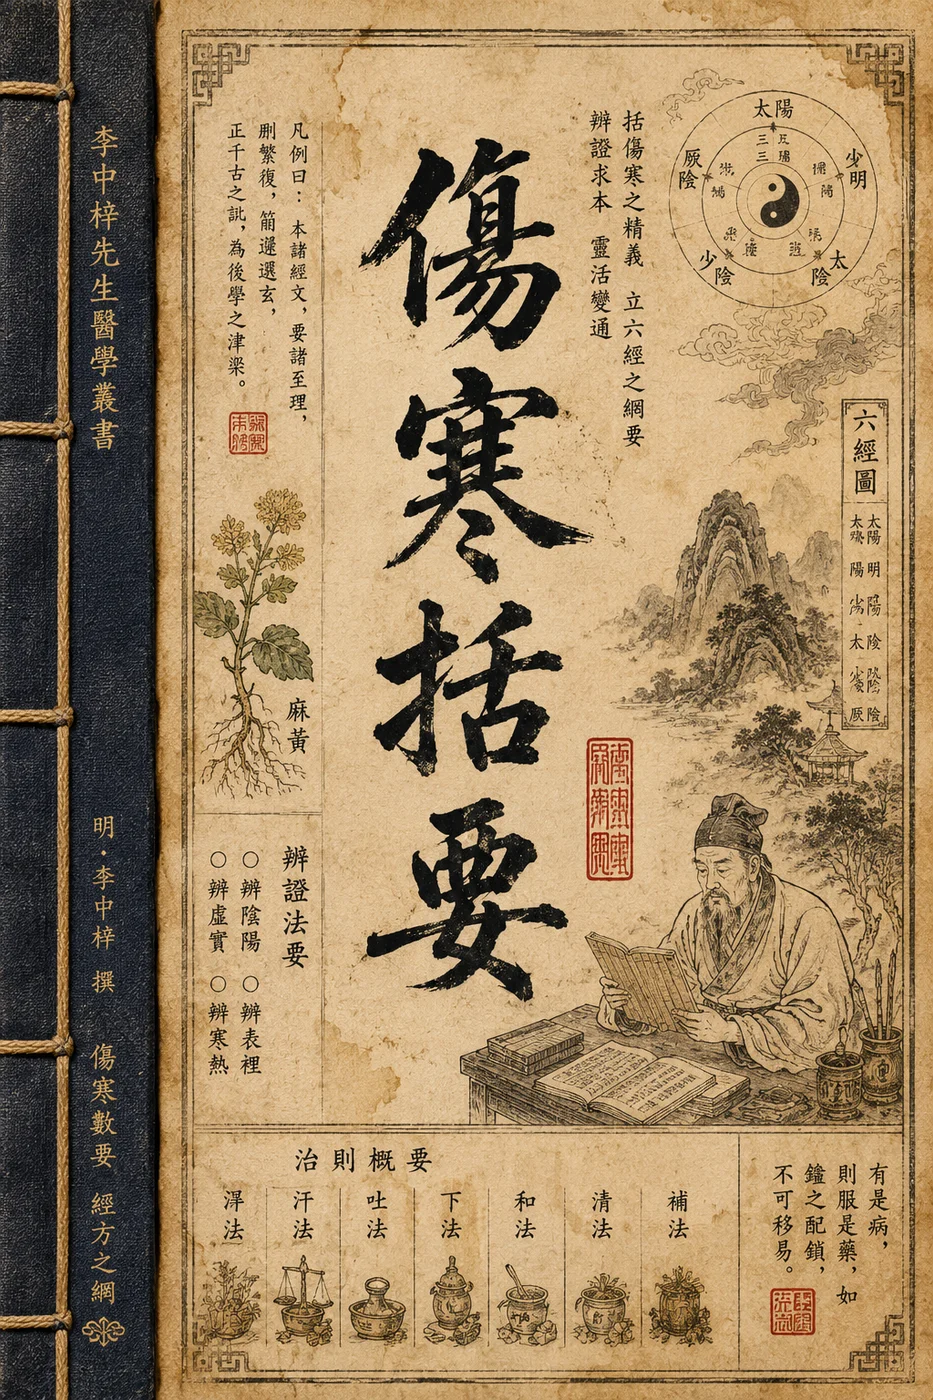 傷寒括要
括傷寒之精義 立六經之綱要
辨證求本 靈活變通
凡例曰：本諸經文，要諸至理，
刪繁復，簡選玄，
正千古之訛，為後學之津梁。
太陽
少明
太陰
少陰
厥陰
六經圖
太陽 明 陰 陰
太 陽 太 厥
麻黃
辨證法要
○辨陰陽 ○辨表裡
○辨虛實 ○辨寒熱
治則概要
汗法
吐法
下法
和法
清法
補法
有是病，
則服是藥，如
鑰之配鎖，
不可移易。
李中梓先生醫學叢書
明·李中梓 撰
傷寒數要 經方之綱